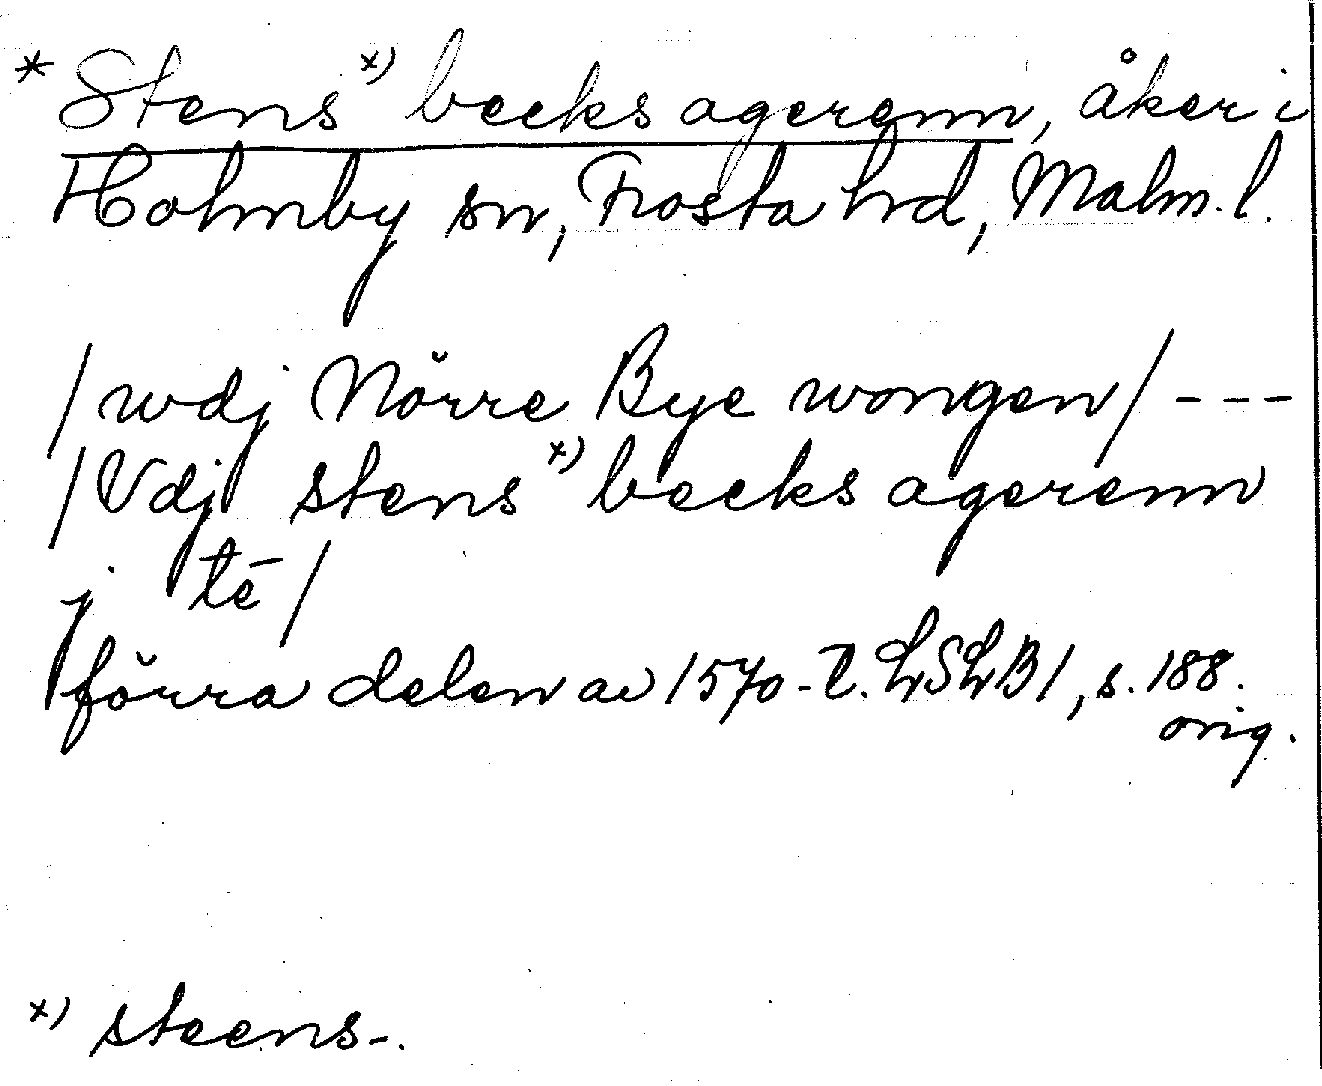 * Stens x) becks agerenn, åker i
Holmby sn, Frosta hrd, Malm. l.
/wdj Nörre Bye wongen/ - - -
/Vdj stens x) becks agerenn
j tē/
förra delen av 1570-t. LSLB1, s. 188.
orig.
x) steens-.